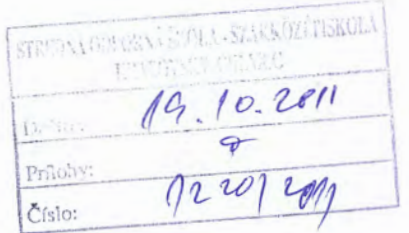 STREDNÁ ODBORNÁ ŠKOLA - SZAKKÖZÉPISKOLA
Dátum: 19. 10. 2011
Prílohy:
Číslo: 1220/2011